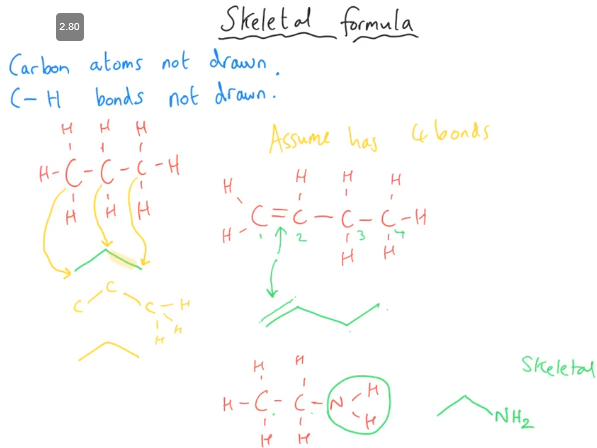 2.80
Skeletal formula
Carbon atoms not drawn.
C-H bonds not drawn.
Assume has 4 bonds
H H H
H-C-C-C-H
H H H
H H H H
C=C-C-C-H
H H H
1 2 3 4
C C C-H
H H
H H
H-C-C-N H
H
H H
NH2
Skeletal